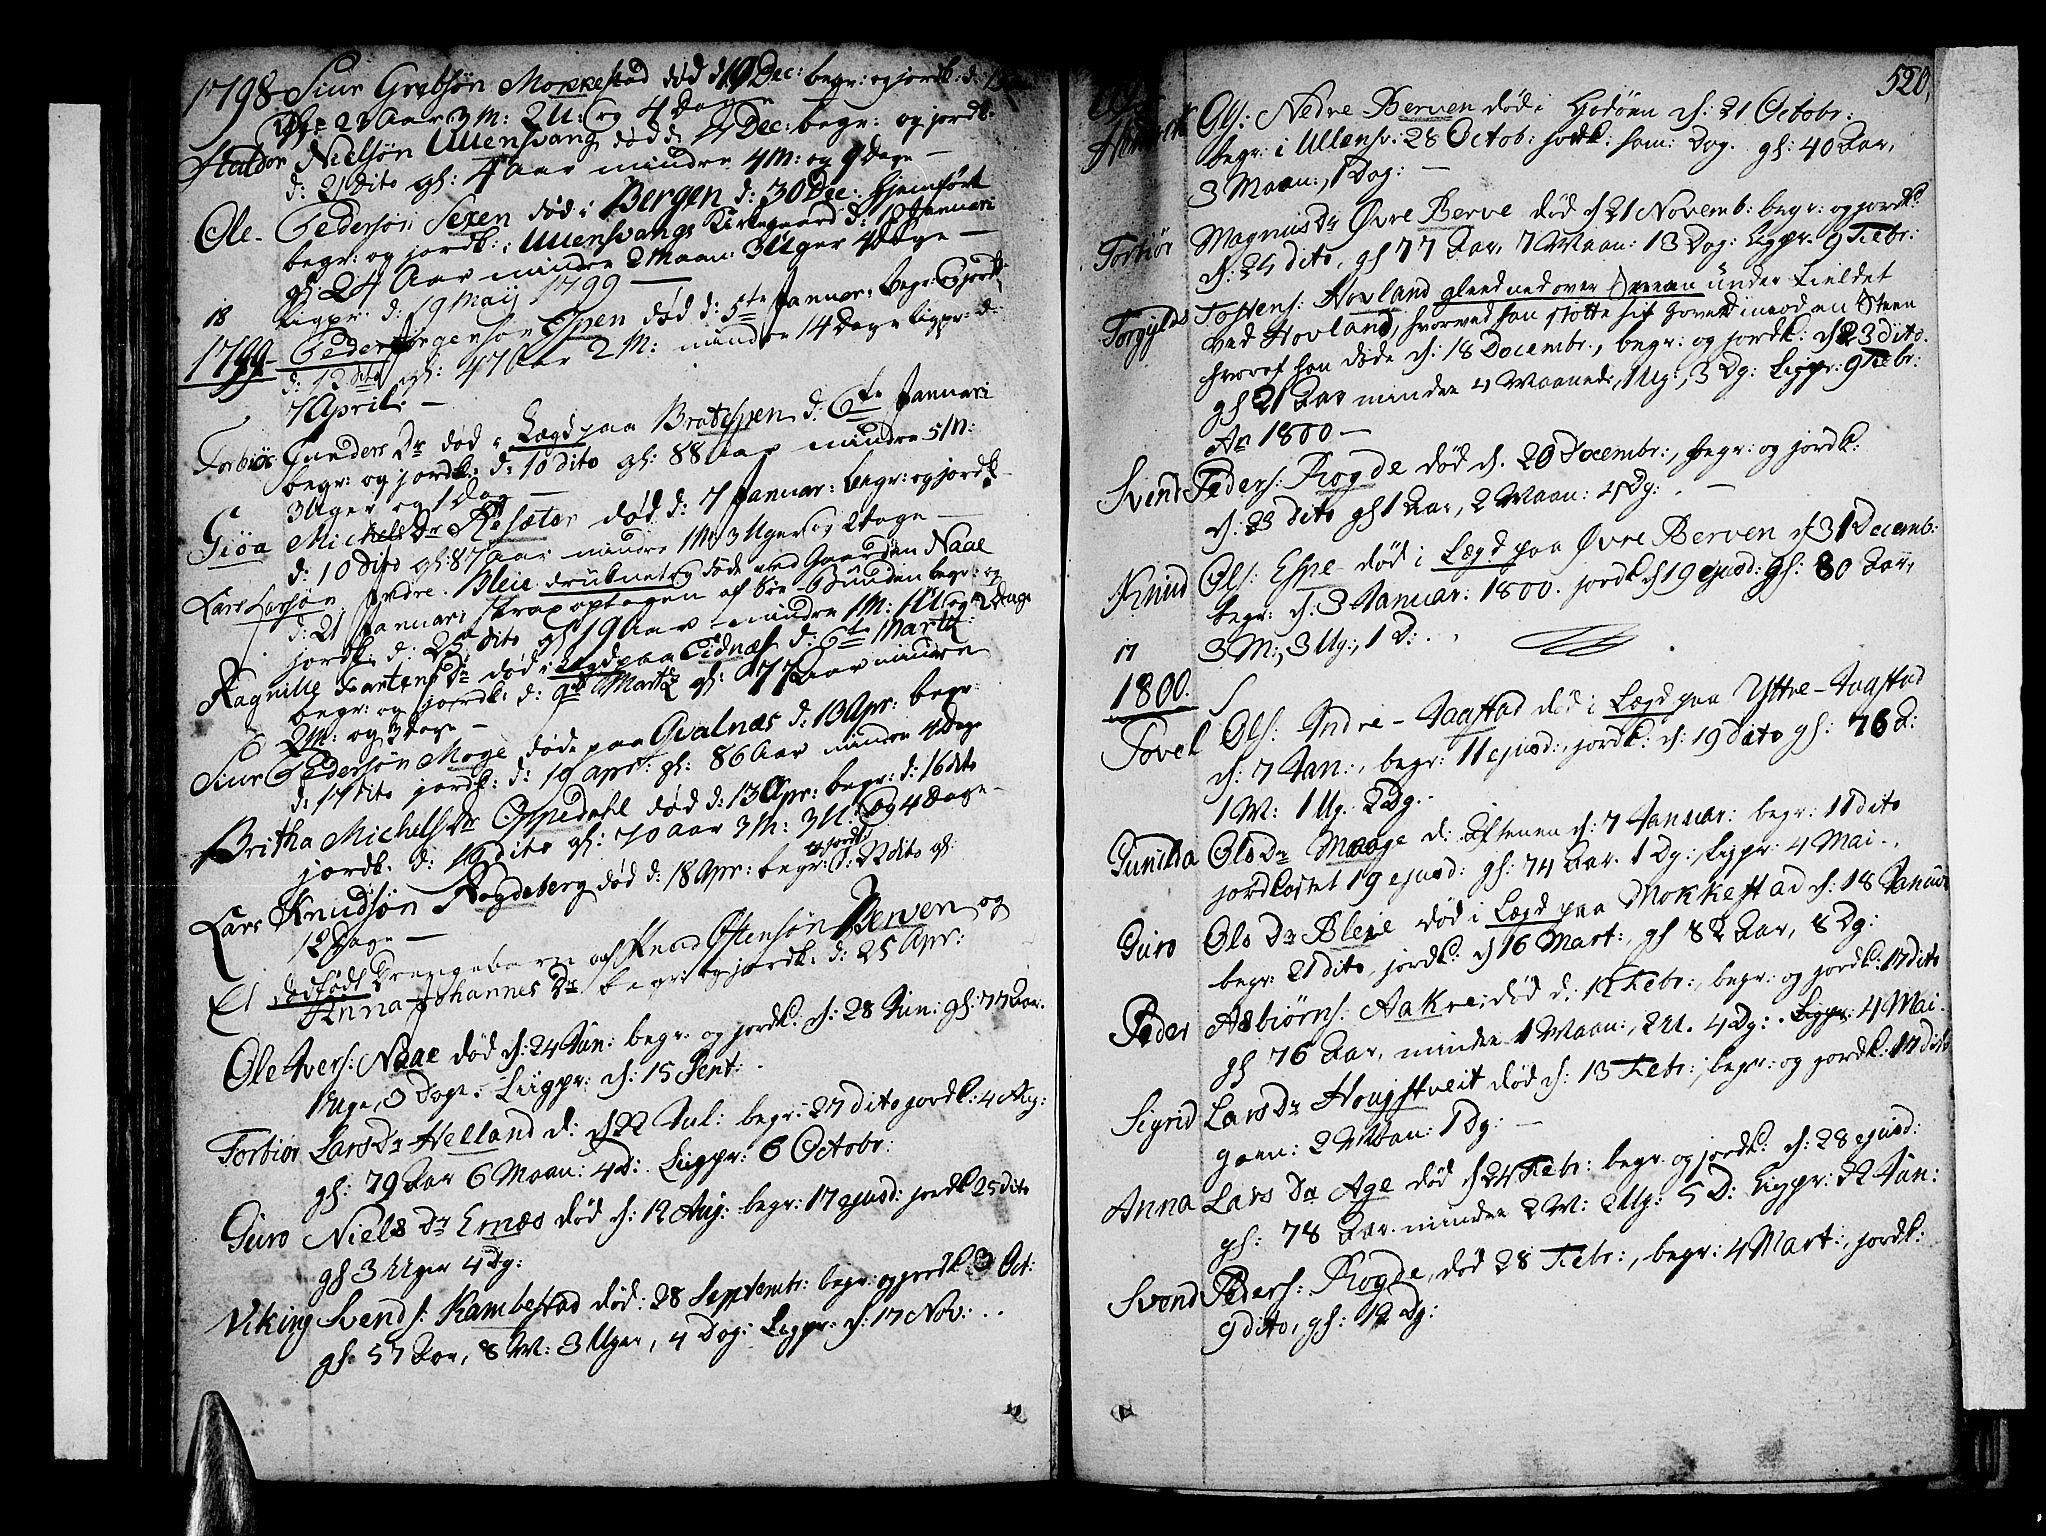 1798 Siur Gretsøn Mokkestad død d: 19 Dec: begr: og jordk: d:
23 Aar 3 M: 2 U: og 4 Dage
Haldor Nielsøn Ullensvang død d: 4 Dec: begr: og jordk:
d: 21 dito gl: 4 Aar mindre 4 M: og 9 Dage –
Ole Pedersøn Sexen død i Bergen d: 30 Dec: Hjemført
begr: og jordk: i Ullensvangs Kirkegaard d: Januari
gl 24 Aar mindre 2 Maan: 3 Uger 4 Dage –
18 Ligpr: d: 19 Maij 1799 –
1799 Peder Jørgensøn Espen død d: 5te Januar: begr: & jordk:
d: 12 dito gl: 47 Aar 2 M: mindre 14 Dage ligpr: d:
7 April: –
Torbiør Gunders Dr død i Lægd paa Bratespen d: 6te Januari
begr: og jordk: d: 10 dito gl: 88 Aar mindre 5 M:
3 Uger og 1 Dag –
Giøa Michels Dr Resæter død d: 7 Januar: begr: og jordk:
d: 10 dito gl: 87 Aar mindre 1 M: 3 Uger og 2 Dage –
Lars Larsøn Indre Bleie druknet og døde ved Gaarden Naae
d: 21 Januar: strax optagen af Søe-Bunden begr: og
jordk: d: 25 dito gl 19 Aar mindre 1 M: 1 U: og 2 Dage
Ragnille Martens Dr død i Lægd paa Eidnæs d: 6te Martz:
begr: og jordk: d: 9de Martz gl: 77 Aar mindre
2 M: og 3 Dage –
Siur Pedersøn Moge døde paa Qvalnæs d: 13 Apr: begr:
d: 17 dito jordk: d: 19 apr: gl: 86 Aar mindre 4 Dage
Britha Michels Dr Oppedahl død d: 13 Apr: begr: d: 16 dito
jordk: d: 19 dito gl: 70 Aar 3 M: 3 U: og 4 Dage –
Lars Knudsøn Rogdeberg død d: 18 Apr: begr: & jordk: d: 22 dito gl:
12 Dage –
Et dødfødt Drengebarn af Knud Ostensøn Berven og
Anna Johannes Dr. begr: og jordk: d: 25 Apr:
Ole Ivers: Naae død d: 24 Jun: begr: og jordk: d: 28 Jun: gl: 77 Aar.
1 Uge, 3 Dage. Liigpr: d: 15 Sept:
Torbiør Lars Dr Helland d: d 22 Jul: begr: 27 dito jordk: 4 Aug:
gl: 79 Aar 6 Maan: 4 D: Liigpr: 6 Octobr:
Guro Niels Dr Ernæs død d: 12 Aug: begr: 17 ejusd: jordk 25 dito
gl 3 Uger 4 Dg:
Viking Svends: Rambestad død: 28 Septembr: begr: og jordk: 3 Oct:
gl: 57 Aar, 8 M: 3 Uger, 4 Dag: Ligpr: d: 17 Nov:
520,
Ols: Nedre Berven død i Godøen d: 21 Octobr:
begr: i Ullensv: 28 Octob: jordk: sam: Dag. gl: 40 Aar,
3 Maan:, 1 Dag: –
Torbiør Magnus Dr Øvre Berve død d 21 Novemb: begr: og jordk:
d: 25 dito, gl 77 Aar, 7 Maan: 13 Dag: Ligpr: 9 Febr:
Torgils Tostens: Hovland gleed ned over under Fieldet
ved Hovland, hvorved han støtte sit Hoved imod en Steen
hvoraf han døde d: 18 Decembr:, begr: og jordk: d 23 dito.
gl 21 Aar mindre 4 Maaneder, 1 Ug:, 3 Dg: Ligpr: 9 Febr:
An 1800 –
Svend Peders: Rogde død d. 20 Decembr:, begr: og jordk:
d: 23 dito gl 1 Aar, 2 Maan: 4 Dg: –
Knud Ols: Espe død i Lægd paa Øvre Berven d 31 Decemb:
begr: d: 3 Januar: 1800. jordk d 19 ejusd: gl: 80 Aar,
17 3 M:, 3 Ug:, 1 D:
1800.
Tovel Ols: Indre-Jaastad død i Lægd paa Yttre-Jaastad
d: 7 Jan:, begr: 11 ejusd:, jordk: d: 19 dito gl: 76 A:
1 M: 1 Ug. 2 Dg.
Gunilda Ols Dr Maage d: Aftenen d: 7 Januar: begr: 11 dito
jordkastet 19 ejusd: gl: 74 Aar. 1 Dg:, Ligpr: 4 Mai.
Guro Ols Dr Bleie død i Lægd paa Mokkestad d: 18 Januar
begr: 21 dito, jordk: d 16 Mart:, gl 82 Aar, 8 Dg:
Peder Asbiørns: Aakre: død d: 12 Febr:, begr: og jordk: 17 dito
gl 76 Aar, mindre 1 Maan:, 2 U. 4 Dg: Ligpr: 4 Mai.
Sigrid Lars Dr Hougstveit død d: 13 Febr:, begr: og jordk: 17 dito
gaml: 2 Maan: 1 Dg: –
Anna Lars Dr Age død d 24 Febr: begr. og jordk: d: 28 ejusd:
gl: 78 Aar mindre 2 M: 2 Ug: 5 D: Ligpr: 22 Jun:
Svend Peders: Rogde, død 28 Febr:, begr: 4 Mart:, jordk:
9 dito, gl: 12 Dg: